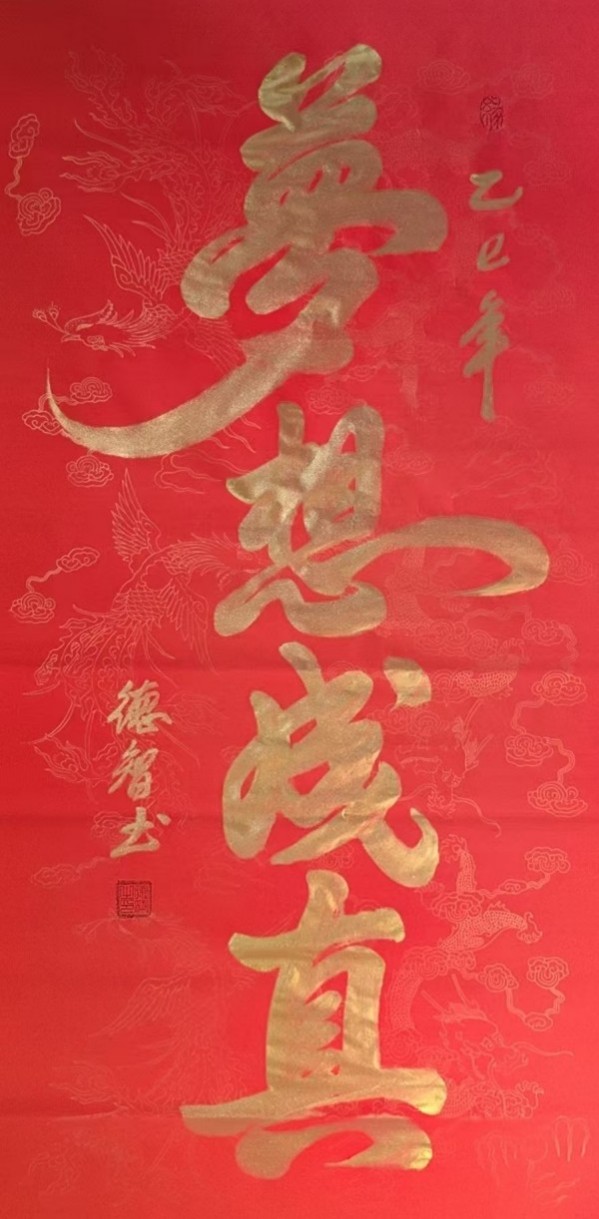 乙巳年
夢想成真
德智书